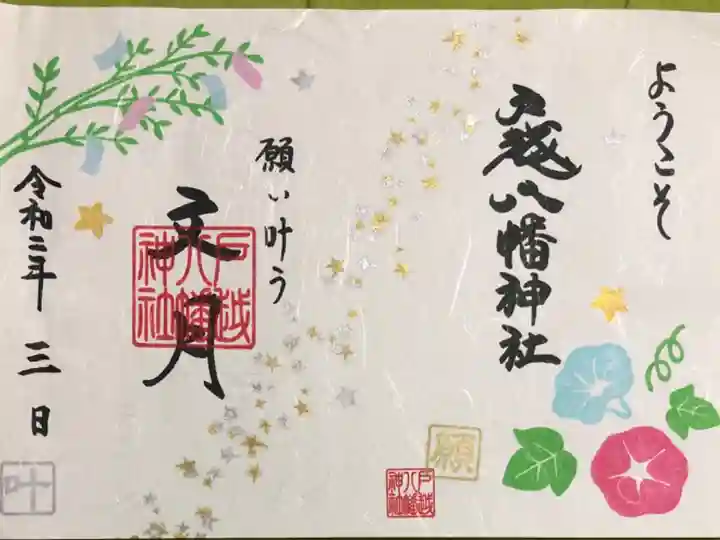 ようこそ
戸越八幡神社
願い叶う
文月
戸越八幡神社
令和二年 三日
願
戸越八幡神社
叶